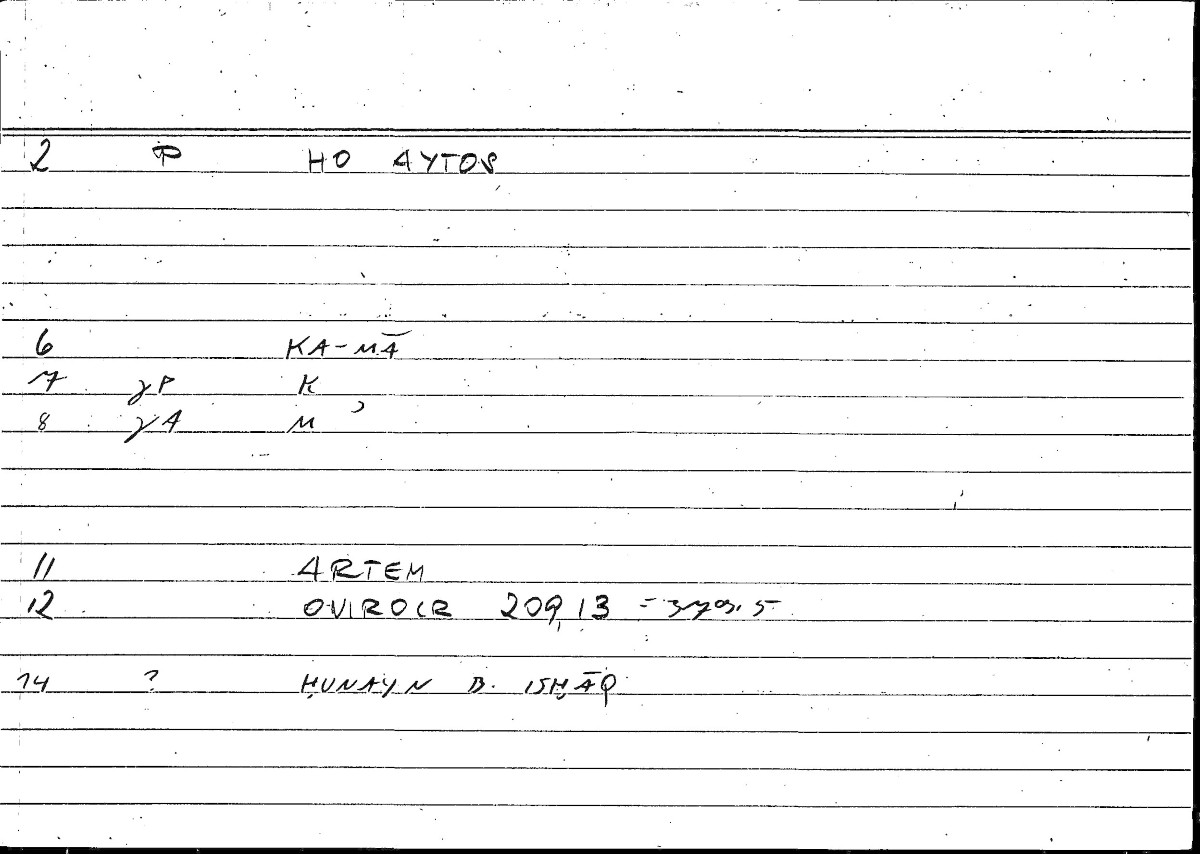 2 P HO AYTOS
6 KA-MĀ
7 γP K
8 γA M
11 ARTEM
12 OVIROCR 209,13 =
14 ? ḤUNAYN B. ISḤĀQ